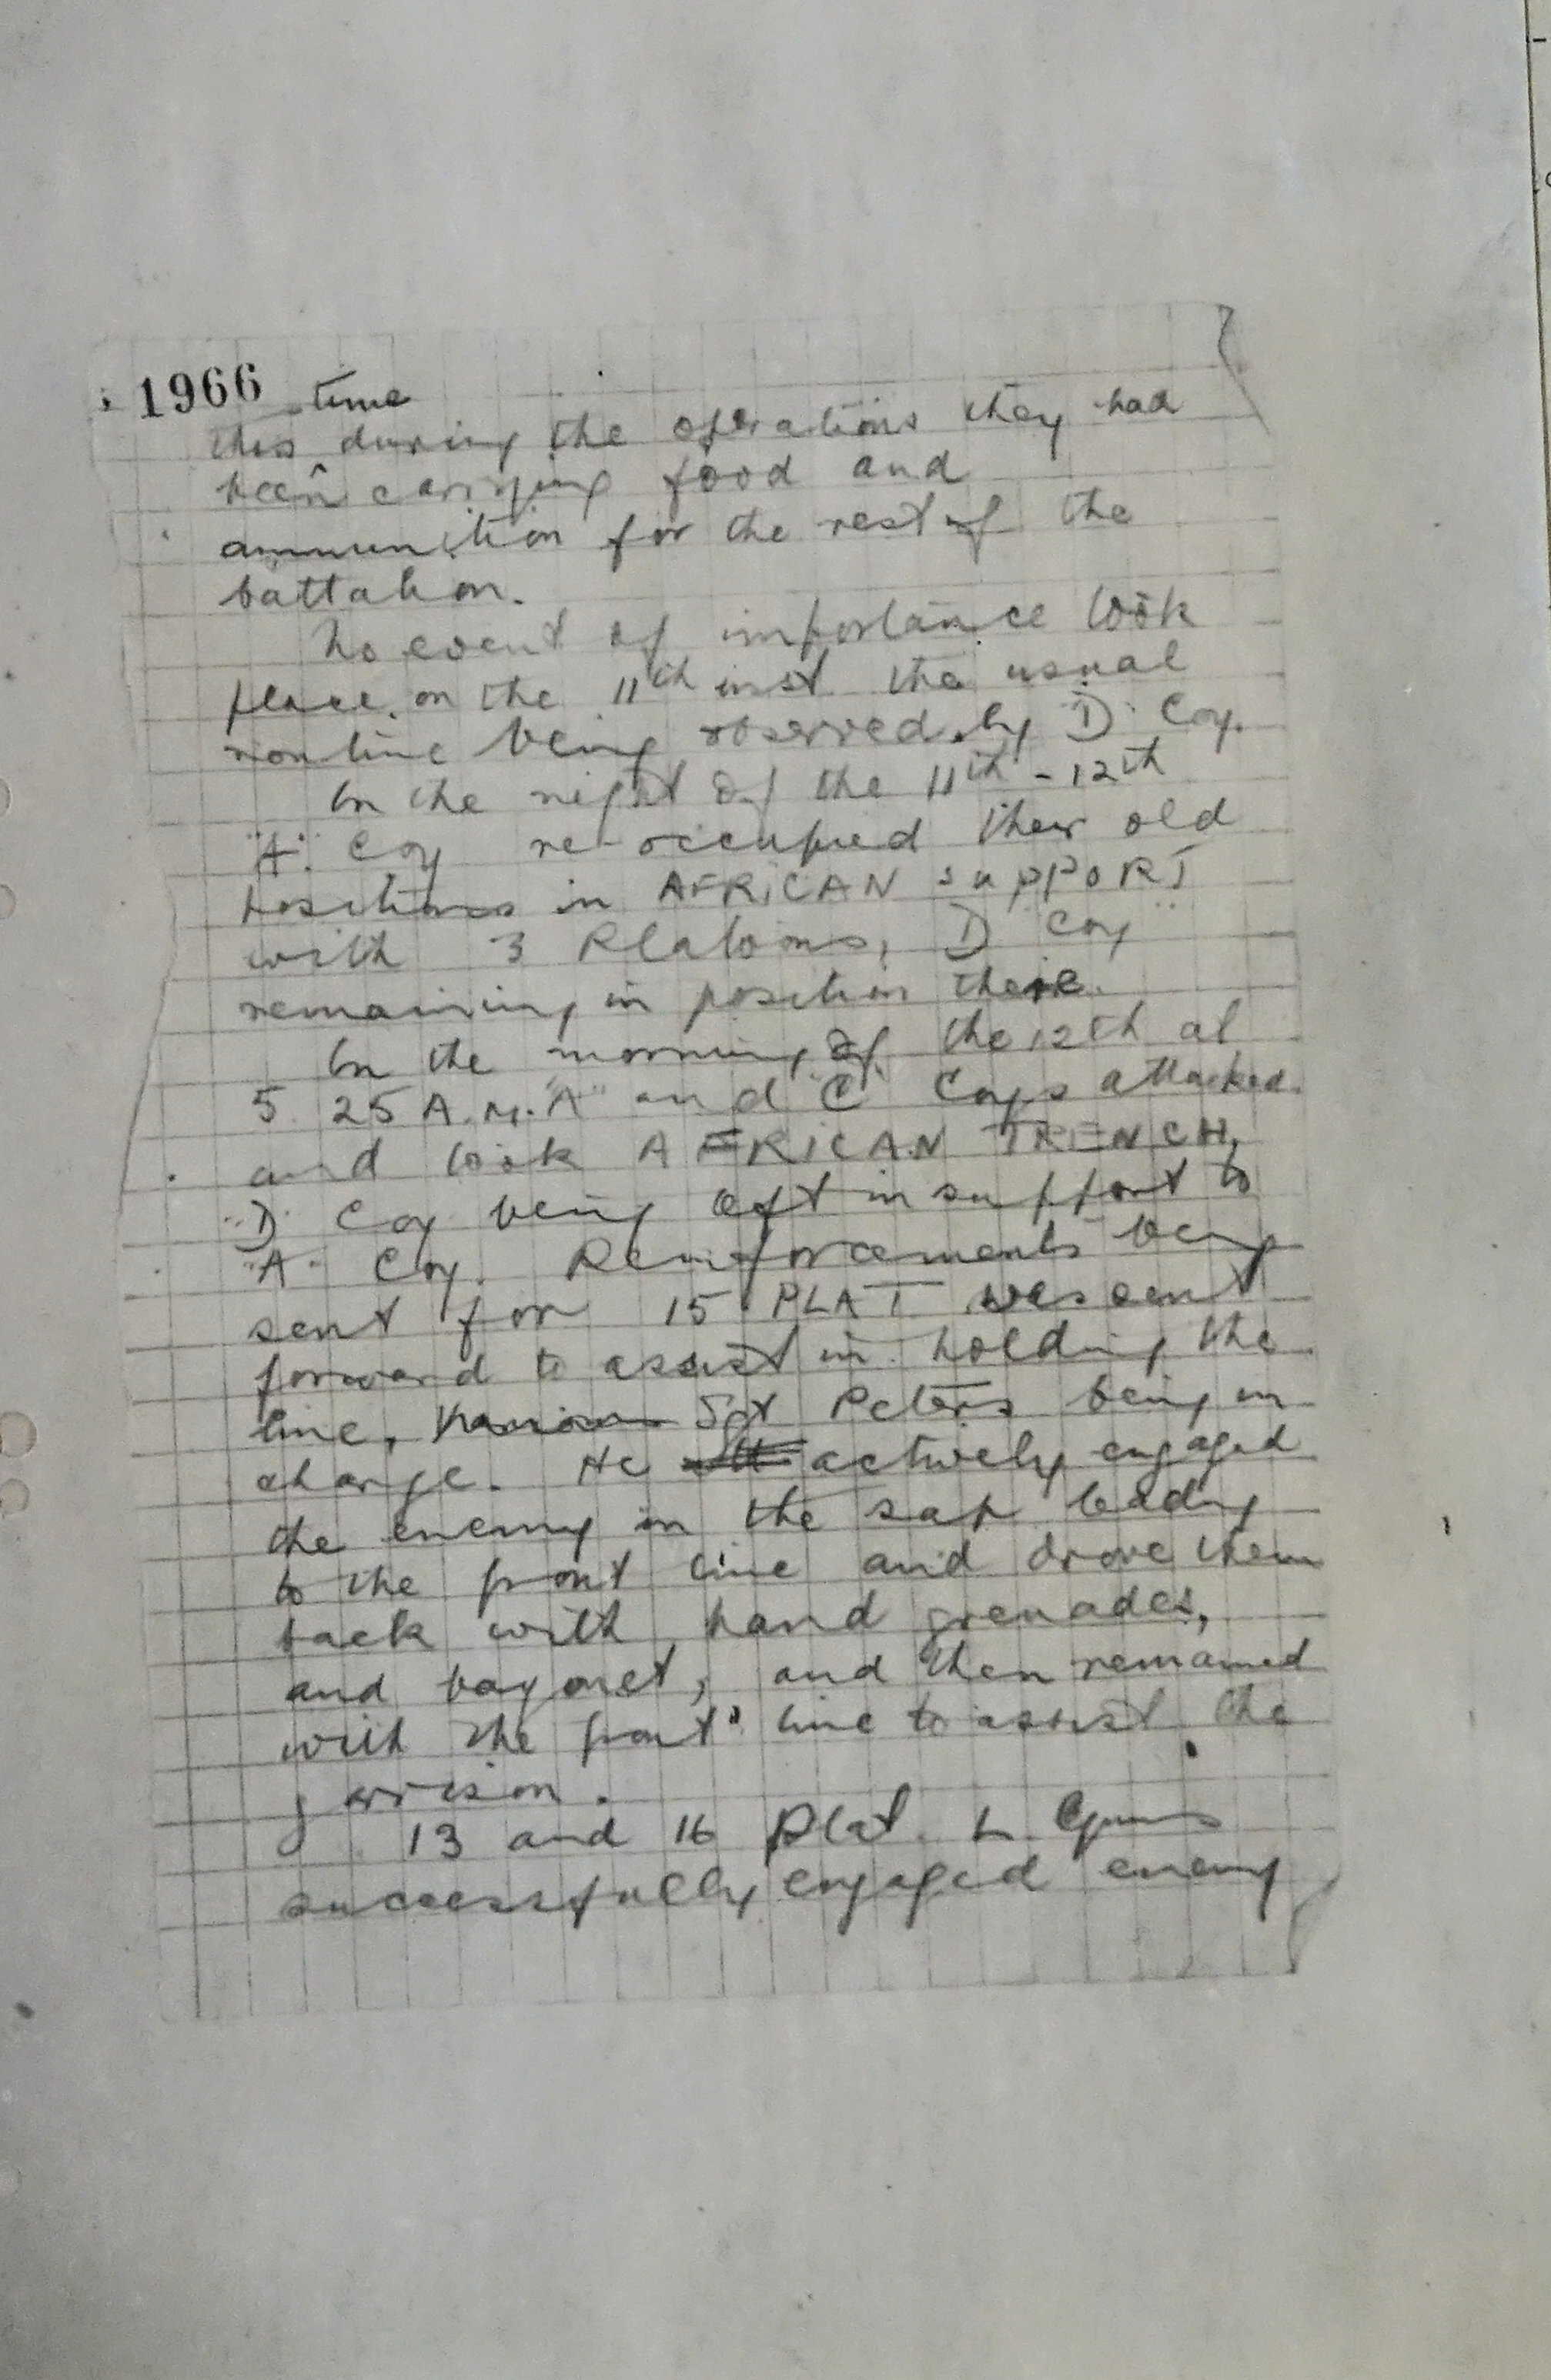 1966 time
this during the operations they had
been carrying food and
ammunition for the rest of the
battalion.
No event of importance took
place, on the 11th inst the usual
routine being observed by "D" Coy.
On the night of the 11th - 12th
"A" Coy re-occupied their old
positions in AFRICAN SUPPORT
with 3 Platoons, "D" Coy
remaining in position there.
On the morning of the 12th at
5 25 A.M. "A" and "C" Coys attacked
and took AFRICAN TRENCH,
"D" Coy being left in support to
"A" Coy. Reinforcements being
sent for 15. PLAT was sent
forward to assist in holding the
line, Sgt Peters being in
charge. He actively engaged
the enemy in the sap leading
to the front line and drove them
back with hand grenades,
and bayonet, and then remained
with the front line to assist the
garrison.
13 and 16 Plat. L. Guns
successfully engaged enemy